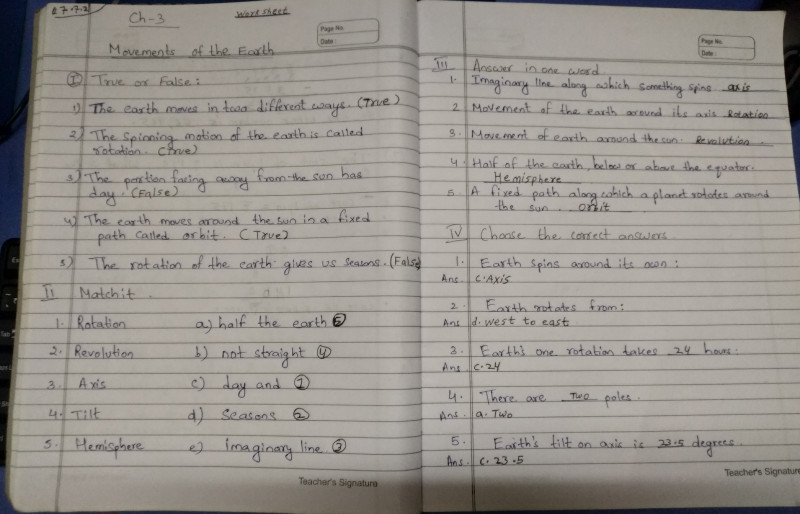 27.7.2
Ch-3 Worksheet
Page No.
Date:
Movements of the Earth
I True or False:
1) The earth moves in two different ways. (True)
2) The spinning motion of the earth is called
rotation. (True)
3) The portion facing away from the sun has
day. (False)
4) The earth moves around the sun in a fixed
path called orbit. (True)
5) The rotation of the earth gives us seasons. (False)
II Match it.
1. Rotation a) half the earth 5
2. Revolution b) not straight 4
3. Axis c) day and 1
4. Tilt d) Seasons 2
5. Hemisphere e) imaginary line 3
Teacher's Signature
Page No.
Date:
III Answer in one word
1. Imaginary line along which something spins axis
2 Movement of the earth around its axis Rotation
3. Movement of earth around the sun. Revolution.
4. Half of the earth, below or above the equator.
Hemisphere
5. A fixed path along which a planet rotates around
the sun. orbit
IV Choose the correct answers
1. Earth spins around its own:
Ans. c. Axis
2. Earth rotates from:
Ans d. west to east
3. Earth's one rotation takes 24 hours:
Ans c. 24
4. There are Two poles.
Ans. a. Two
5. Earth's tilt on axis is 23.5 degrees.
Ans. c. 23.5
Teacher's Signature